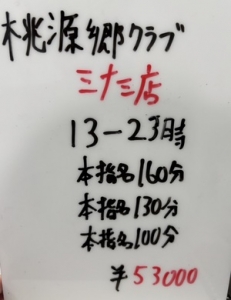 桃源郷クラブ
三十三店
13-23時
本指名160分
本指名130分
本指名100分
¥53000